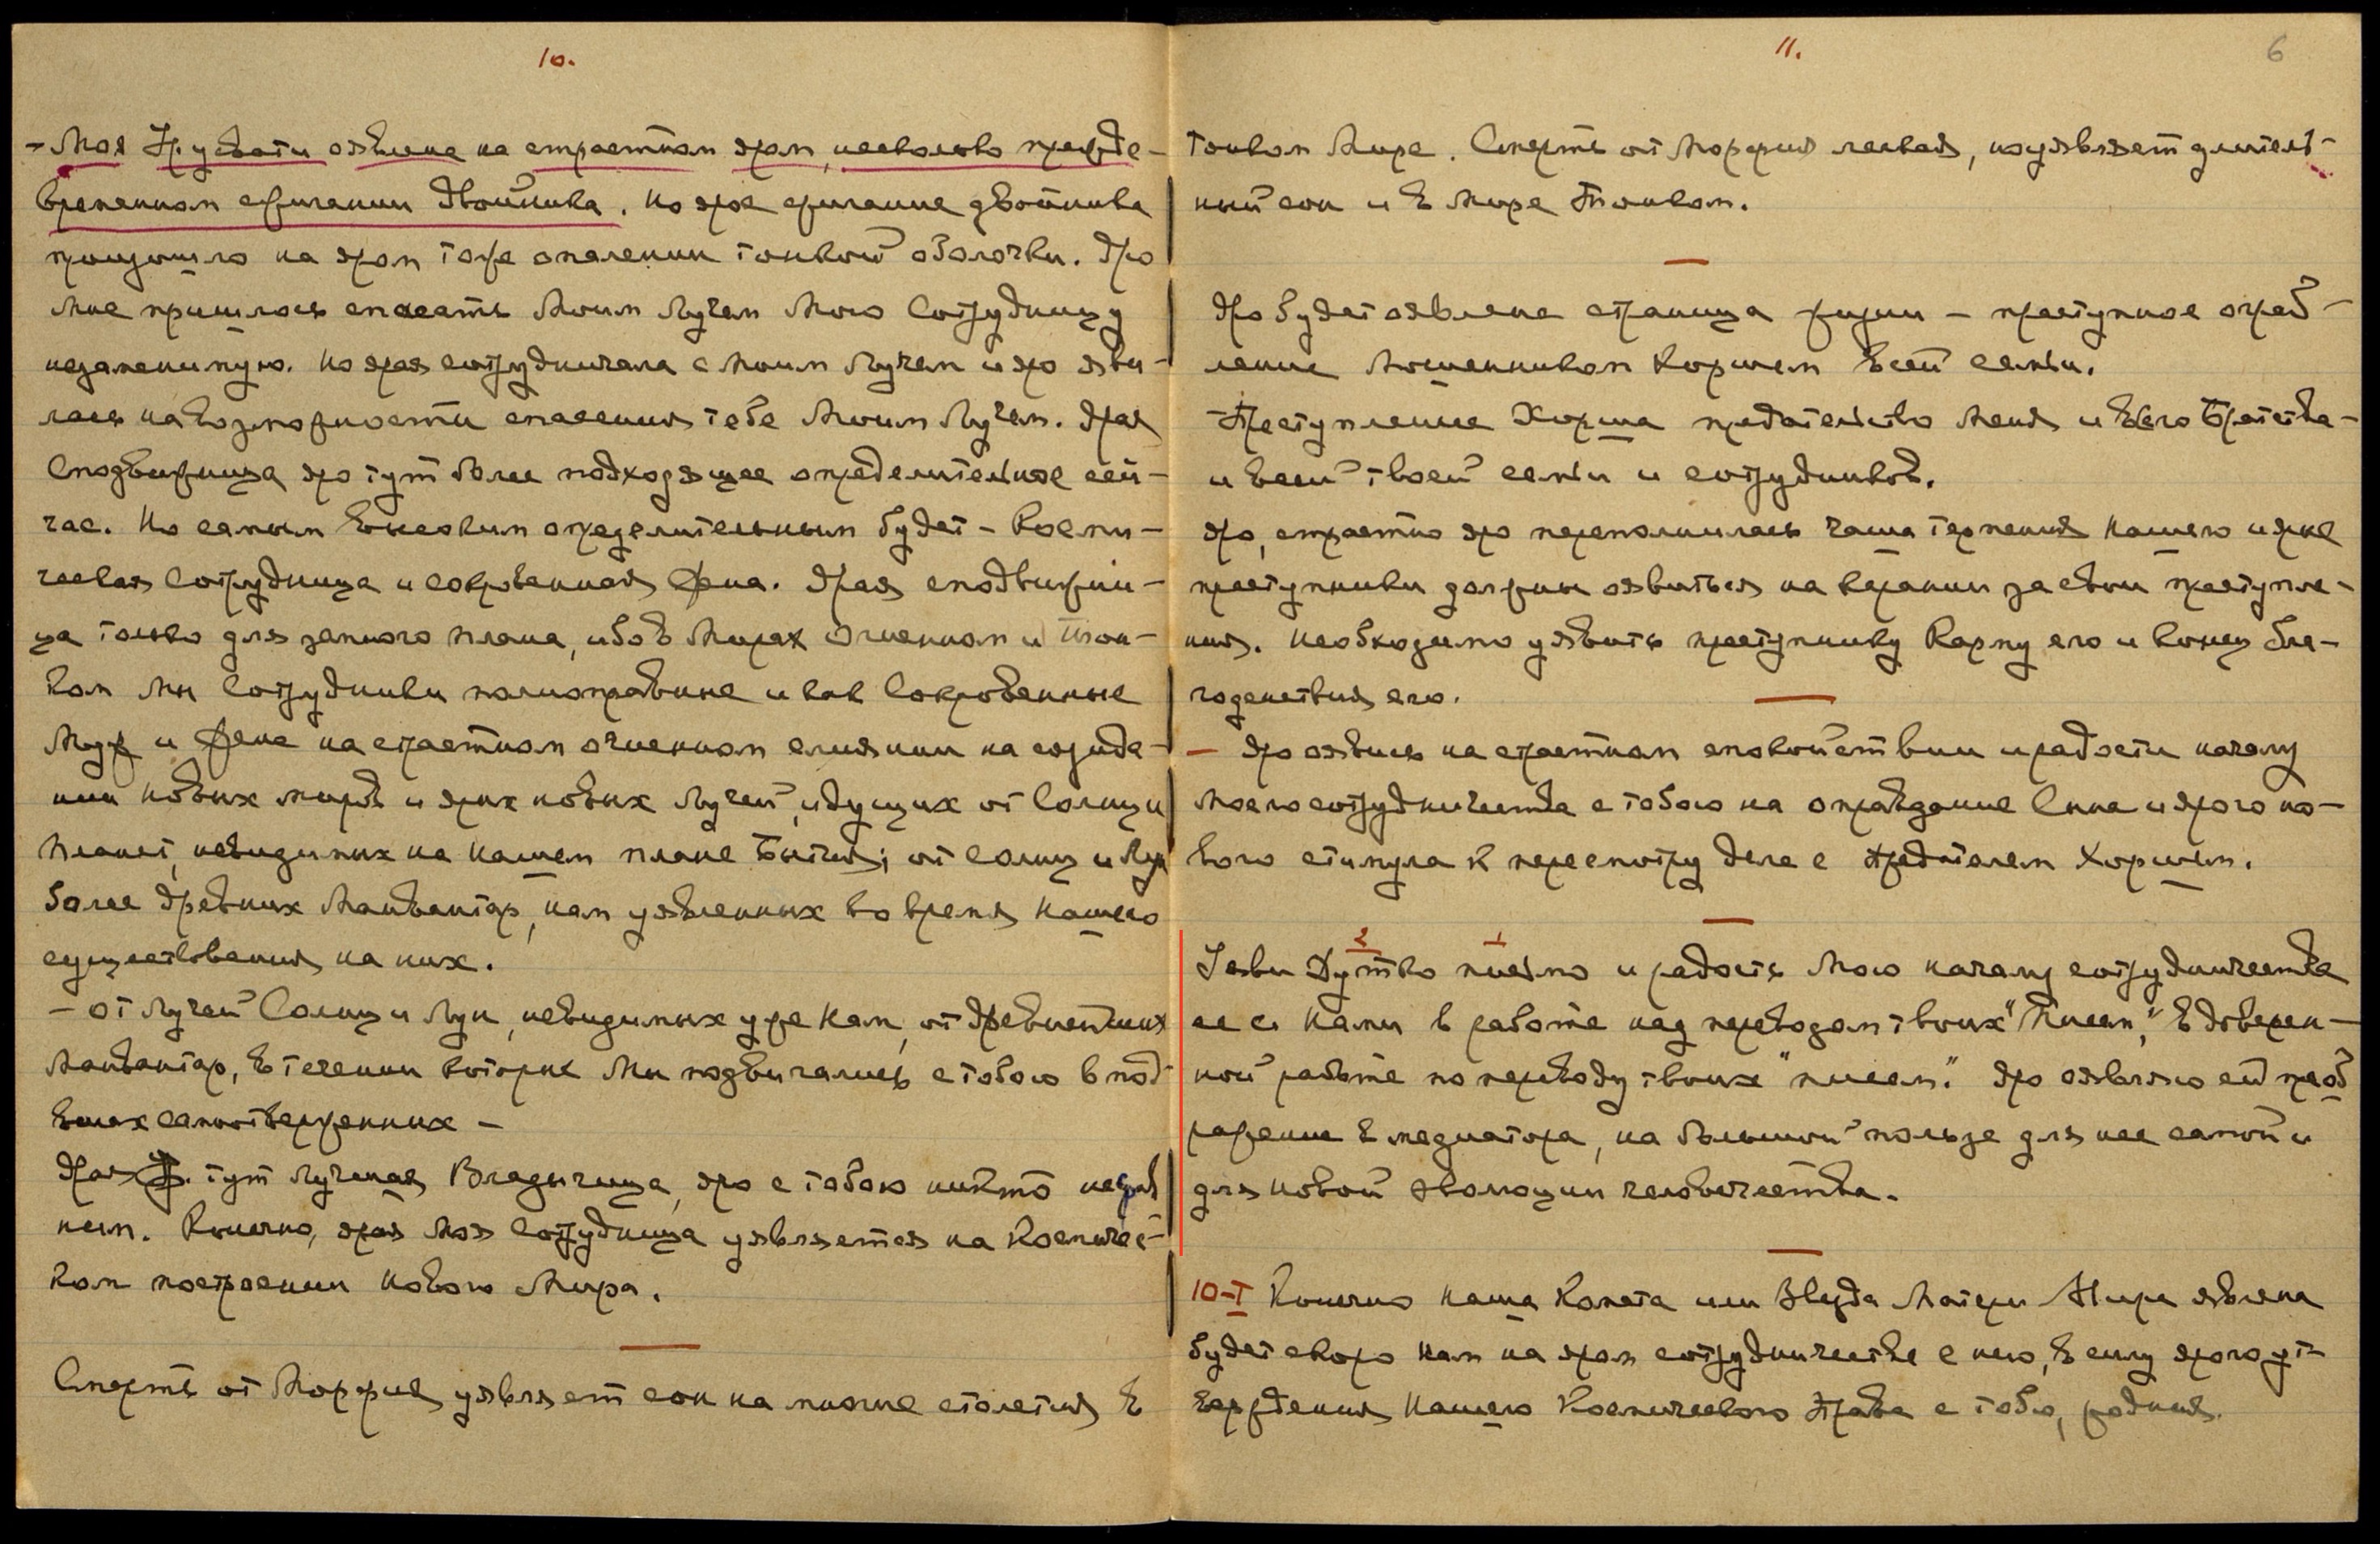 10.
- Моя Урусвати оявлена на страстном яром, несколько прежде-
временном сжигании двойника. Но ярое сжигание двойника
произошло на яром тоже опалении тонкой оболочки. Яро
Мне пришлось спасать Моим Лучем Мою Сотрудницу
незаменимую. Но ярая сотрудничала с Моим Лучем и яро яви-
лась на возможности спасения тебе Моим Лучем. Ярая
Сподвижница яро тут более подходящее определительное сей-
час. Но самым высоким определительным будет - Косми-
ческая Сотрудница и сокровенная Жена. Ярая сподвижни-
ца только для земного плана, ибо в Мирах Огненном и Тон-
ком мы Сотрудники полноправные и как Сокровенные
Муж и Жена на страстном огненном слиянии на созида-
нии новых миров и ярых новых Лучей, идущих от Солнц и
Планет, невидимых на нашем плане Бытия; от Солнц и Лун
более древних Манвантар, нам уявленных во время Нашего
существования на них.
- от Лучей Солнц и Лун, невидимых уже Нам, от древнейших
Манвантар, в течении которых Мы подвигались с тобою в под-
вигах самоотверженных -
Ярая тут Лучшая Владычица, яро с тобою никто несрав
ним. Конечно, ярая Моя Сотрудница уявляется на Космичес-
ком построении Нового Мира.
Смерть от Морфия уявляет сон на многие столетия в
11.
6
тонком Мире. Смерть от Морфия легкая, но уявляет длитель-
ный сон и в Мире Тонком.
Яро будет оявлена страница жизни - преступное ограб-
ление Мошенником Хоршем всей семьи.
Преступление Хорша предательство Меня и всего Братства -
и всей твоей семьи и сотрудников.
Яро, страстно яро переполнилась чаша терпения Нашего и ярые
преступники должны оявиться на карании за свои преступле-
ния. Необходимо уявить преступнику Карму его и конец бла-
годенствия его.
- Яро оявись на страстном спокойствии и радости началу
Моего сотрудничества с тобою на оправдание Сына и ярого но-
вого стимула к пересмотру дела с предателем Хоршем.
2 1
Уяви Дутко письмо и радость Мою началу сотрудничества
ее с Нами в работе над переводом твоих "Писем," в доверен-
ной работе по переводу твоих "писем." Яро оявляю ей преоб
ражение в медиатора, на большой пользе для нее самой и
для новой эволюции человечества.
10-I Конечно Наша Комета или Звезда Матери Мира явлена
будет скоро Нам на яром сотрудничестве с нею, в силу ярого ут-
верждения Нашего Космического Права с тобою, родная.